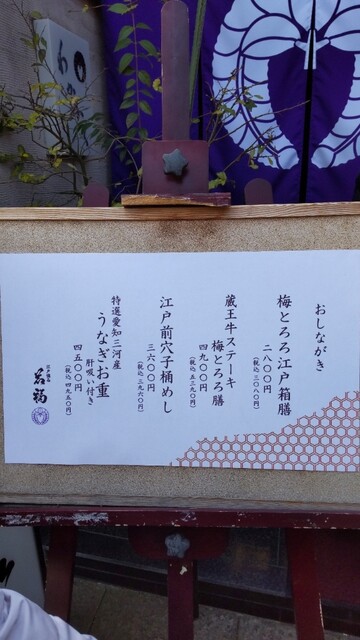 おしながき
梅とろろ江戸箱膳
二八〇〇円
(税込 三〇八〇円)
蔵王牛ステーキ
梅とろろ膳
四九〇〇円
(税込 五三九〇円)
江戸前穴子桶めし
三六〇〇円
(税込 三九六〇円)
特選愛知三河産
うなぎお重
肝吸い付き
四五〇〇円
(税込 四九五〇円)
若福